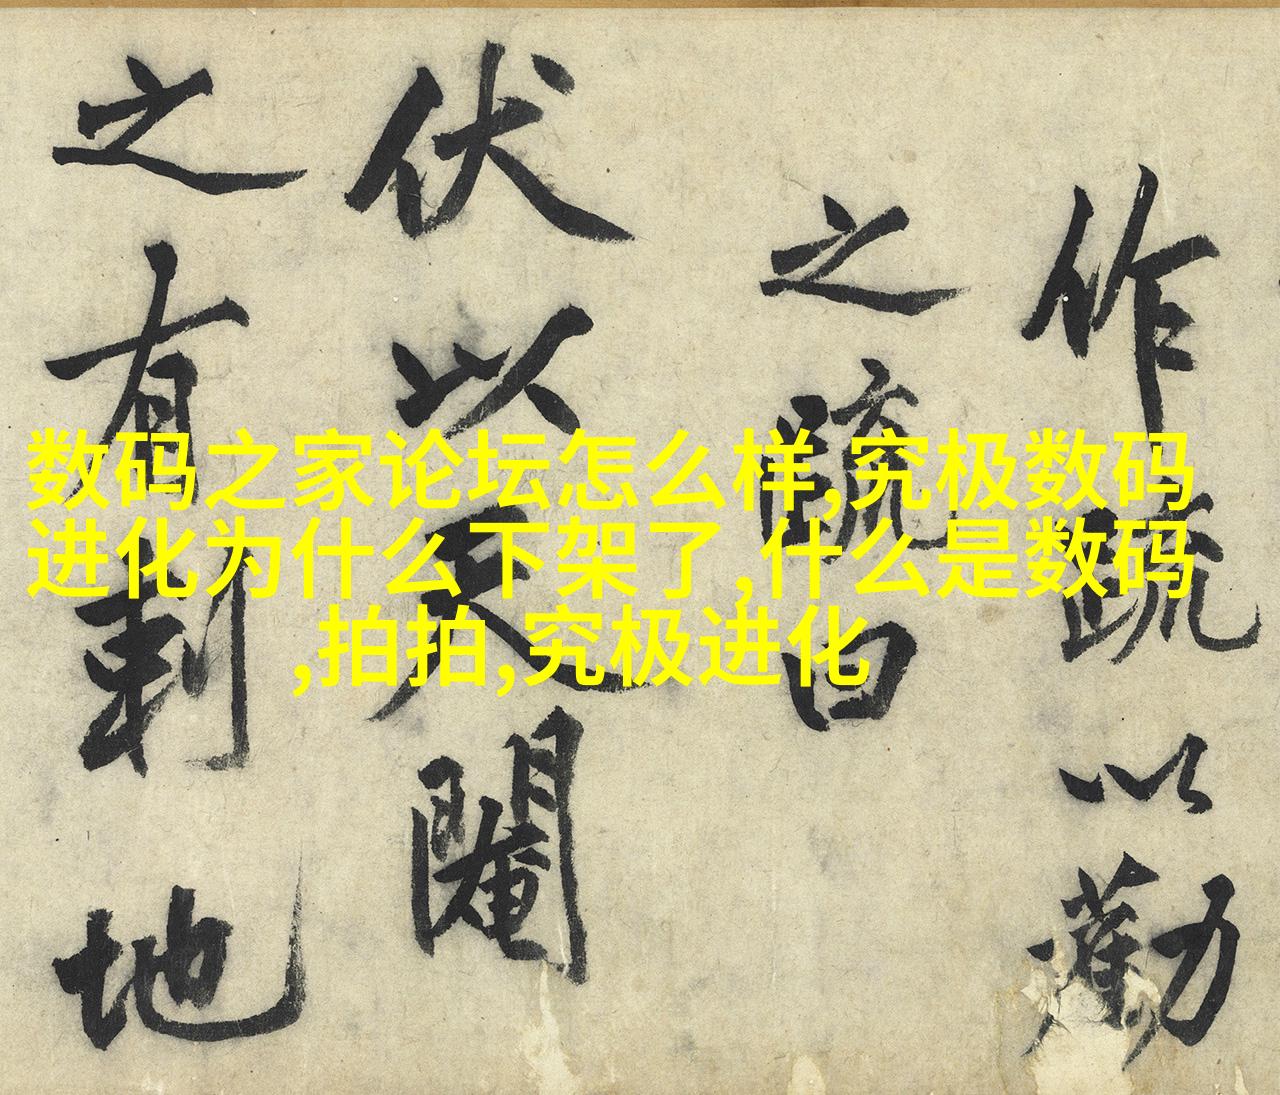 作疏以勸
之疏曰
伏以天閹
之有刺地
数码之家论坛怎么样,究极数码
进化为什么下架了,什么是数码
,拍拍,究极进化